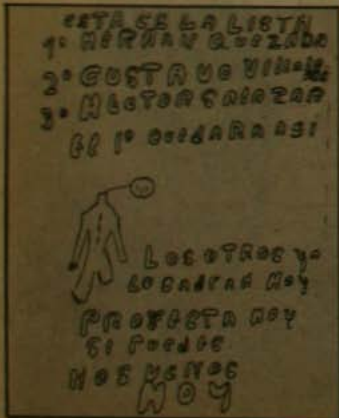 ESTA ES LA LISTA
1º HERNAN QUEZADA
2º GUSTAVO
3º HECTOR SALAZAR
EL 1º QUEDARA ASI
LOS OTROS ya
LO SABRAN HOY
PROTESTA HOY
SI PUEDES
NOS VEMOS
HOY